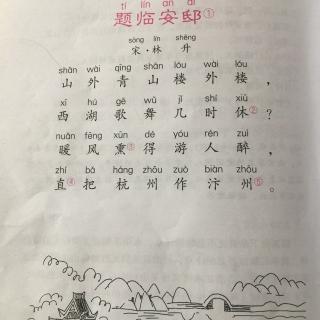 tí lín ān dǐ
题临安邸①
sòng lín shēng
宋·林 升
shān wài qīng shān lóu wài lóu
山外青山楼外楼，
xī hú gē wǔ jǐ shí xiū
西湖歌舞几时休②？
nuǎn fēng xūn dé yóu rén zuì
暖风熏③得游人醉，
zhí bǎ háng zhōu zuò biàn zhōu
直④把杭州作汴州⑤。